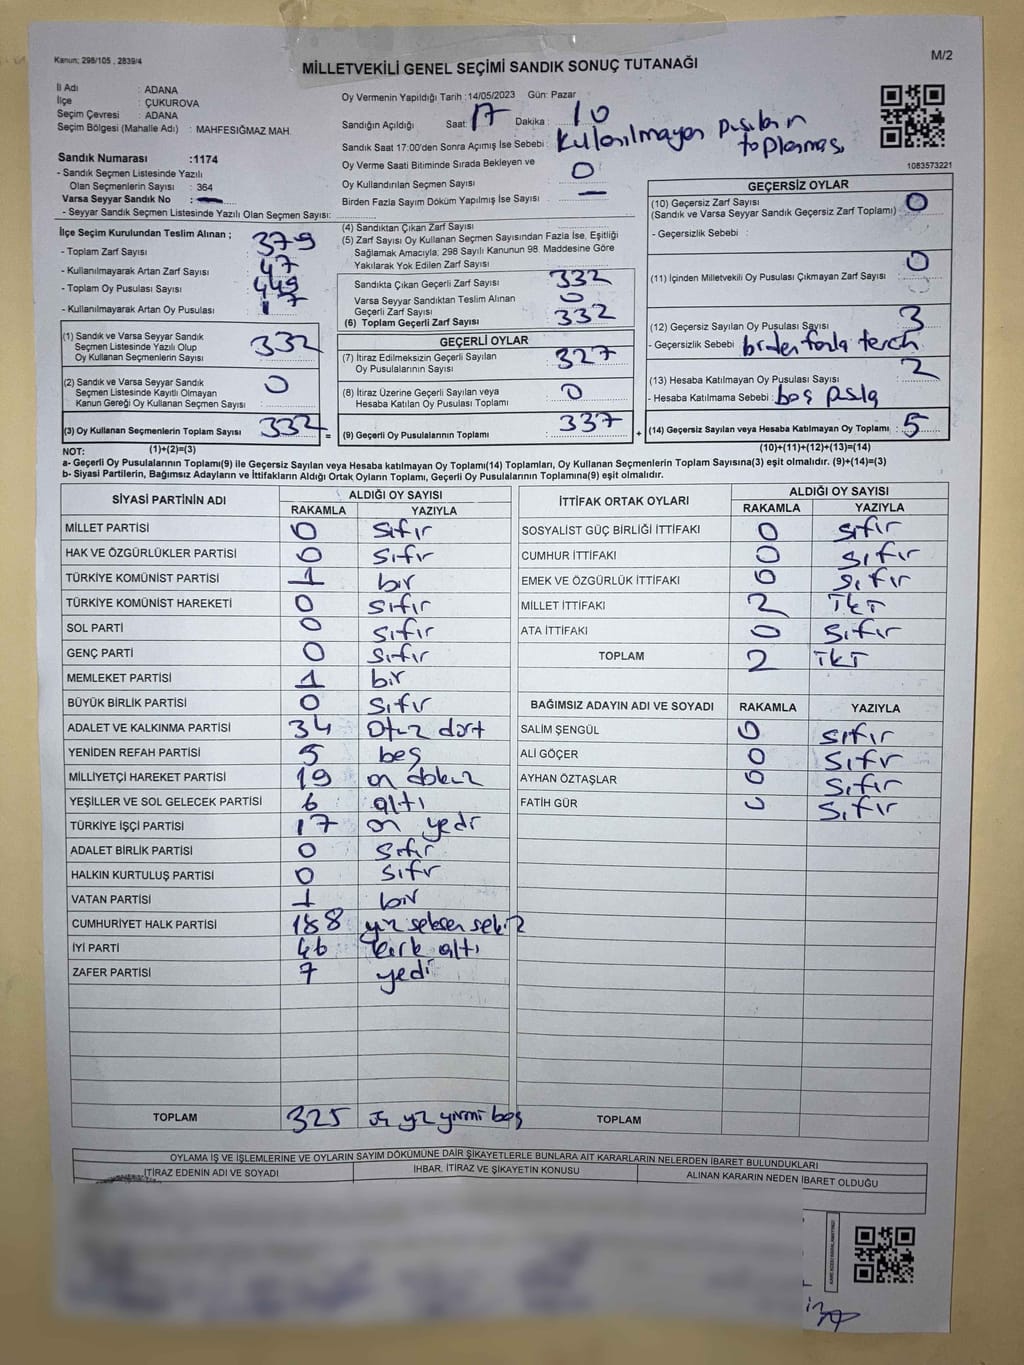 Kanun; 298/105 , 2839/4
M/2
MİLLETVEKİLİ GENEL SEÇİMİ SANDIK SONUÇ TUTANAĞI
İl Adı : ADANA
İlçe : ÇUKUROVA
Seçim Çevresi : ADANA
Seçim Bölgesi (Mahalle Adı) : MAHFESIĞMAZ MAH.
Sandık Numarası :1174
- Sandık Seçmen Listesinde Yazılı
Olan Seçmenlerin Sayısı : 364
Varsa Seyyar Sandık No :
- Seyyar Sandık Seçmen Listesinde Yazılı Olan Seçmen Sayısı:
Oy Vermenin Yapıldığı Tarih :14/05/2023 Gün: Pazar
Sandığın Açıldığı Saat: 17 Dakika : 10
Sandık Saat 17:00'den Sonra Açımış İse Sebebi : Kullanılmayan pusulaların toplanması
Oy Verme Saati Bitiminde Sırada Bekleyen ve
Oy Kullandırılan Seçmen Sayısı 0
Birden Fazla Sayım Döküm Yapılmış İse Sayısı : —
1083573221
İlçe Seçim Kurulundan Teslim Alınan ;
- Toplam Zarf Sayısı 379
- Kullanılmayarak Artan Zarf Sayısı 47
- Toplam Oy Pusulası Sayısı 449
- Kullanılmayarak Artan Oy Pusulası
(1) Sandık ve Varsa Seyyar Sandık
Seçmen Listesinde Yazılı Olup
Oy Kullanan Seçmenlerin Sayısı 332
(2) Sandık ve Varsa Seyyar Sandık
Seçmen Listesinde Kayıtlı Olmayan
Kanun Gereği Oy Kullanan Seçmen Sayısı 0
(3) Oy Kullanan Seçmenlerin Toplam Sayısı 332 =
(1)+(2)=(3)
(4) Sandıktan Çıkan Zarf Sayısı
(5) Zarf Sayısı Oy Kullanan Seçmen Sayısından Fazla İse, Eşitliği
Sağlamak Amacıyla, 298 Sayılı Kanunun 98. Maddesine Göre
Yakılarak Yok Edilen Zarf Sayısı
Sandıkta Çıkan Geçerli Zarf Sayısı 332
Varsa Seyyar Sandıktan Teslim Alınan
Geçerli Zarf Sayısı 0
(6) Toplam Geçerli Zarf Sayısı 332
GEÇERLİ OYLAR
(7) İtiraz Edilmeksizin Geçerli Sayılan
Oy Pusulalarının Sayısı 327
(8) İtiraz Üzerine Geçerli Sayılan veya
Hesaba Katılan Oy Pusulası Toplamı 0
(9) Geçerli Oy Pusulalarının Toplamı 337 +
GEÇERSİZ OYLAR
(10) Geçersiz Zarf Sayısı 0
(Sandık ve Varsa Seyyar Sandık Geçersiz Zarf Toplamı)
- Geçersizlik Sebebi :
(11) İçinden Milletvekili Oy Pusulası Çıkmayan Zarf Sayısı 0
(12) Geçersiz Sayılan Oy Pusulası Sayısı 3
- Geçersizlik Sebebi : birden fazla tercih
(13) Hesaba Katılmayan Oy Pusulası Sayısı 2
- Hesaba Katılmama Sebebi : boş pusla
(14) Geçersiz Sayılan veya Hesaba Katılmayan Oy Toplamı : 5
(10)+(11)+(12)+(13)=(14)
NOT:
a- Geçerli Oy Pusulalarının Toplamı(9) ile Geçersiz Sayılan veya Hesaba katılmayan Oy Toplamı(14) Toplamları, Oy Kullanan Seçmenlerin Toplam Sayısına(3) eşit olmalıdır. (9)+(14)=(3)
b- Siyasi Partilerin, Bağımsız Adayların ve İttifakların Aldığı Ortak Oyların Toplamı, Geçerli Oy Pusulalarının Toplamına(9) eşit olmalıdır.
SİYASİ PARTİNİN ADI ALDIĞI OY SAYISI
RAKAMLA YAZIYLA
MİLLET PARTİSİ 0 sıfır
HAK VE ÖZGÜRLÜKLER PARTİSİ 0 sıfır
TÜRKİYE KOMÜNİST PARTİSİ 1 bir
TÜRKİYE KOMÜNİST HAREKETİ 0 sıfır
SOL PARTİ 0 sıfır
GENÇ PARTİ 0 sıfır
MEMLEKET PARTİSİ 1 bir
BÜYÜK BİRLİK PARTİSİ 0 sıfır
ADALET VE KALKINMA PARTİSİ 34 otuz dört
YENİDEN REFAH PARTİSİ 5 beş
MİLLİYETÇİ HAREKET PARTİSİ 19 on dokuz
YEŞİLLER VE SOL GELECEK PARTİSİ 6 altı
TÜRKİYE İŞÇİ PARTİSİ 17 on yedi
ADALET BİRLİK PARTİSİ 0 sıfır
HALKIN KURTULUŞ PARTİSİ 0 sıfır
VATAN PARTİSİ 1 bir
CUMHURİYET HALK PARTİSİ 188 yüz seksen sekiz
İYİ PARTİ 46 kırk altı
ZAFER PARTİSİ 7 yedi
TOPLAM 325 üç yüz yirmi beş
İTTİFAK ORTAK OYLARI ALDIĞI OY SAYISI
RAKAMLA YAZIYLA
SOSYALİST GÜÇ BİRLİĞİ İTTİFAKI 0 sıfır
CUMHUR İTTİFAKI 0 sıfır
EMEK VE ÖZGÜRLÜK İTTİFAKI 0 sıfır
MİLLET İTTİFAKI 2 İKİ
ATA İTTİFAKI 0 sıfır
TOPLAM 2 İKİ
BAĞIMSIZ ADAYIN ADI VE SOYADI RAKAMLA YAZIYLA
SALİM ŞENGÜL 0 sıfır
ALİ GÖÇER 0 sıfır
AYHAN ÖZTAŞLAR 0 sıfır
FATİH GÜR 0 sıfır
TOPLAM
OYLAMA İŞ VE İŞLEMLERİNE VE OYLARIN SAYIM DÖKÜMÜNE DAİR ŞİKAYETLERLE BUNLARA AİT KARARLARIN NELERDEN İBARET BULUNDUKLARI
İTİRAZ EDENİN ADI VE SOYADI
İHBAR, İTİRAZ VE ŞİKAYETİN KONUSU
ALINAN KARARIN NEDEN İBARET OLDUĞU